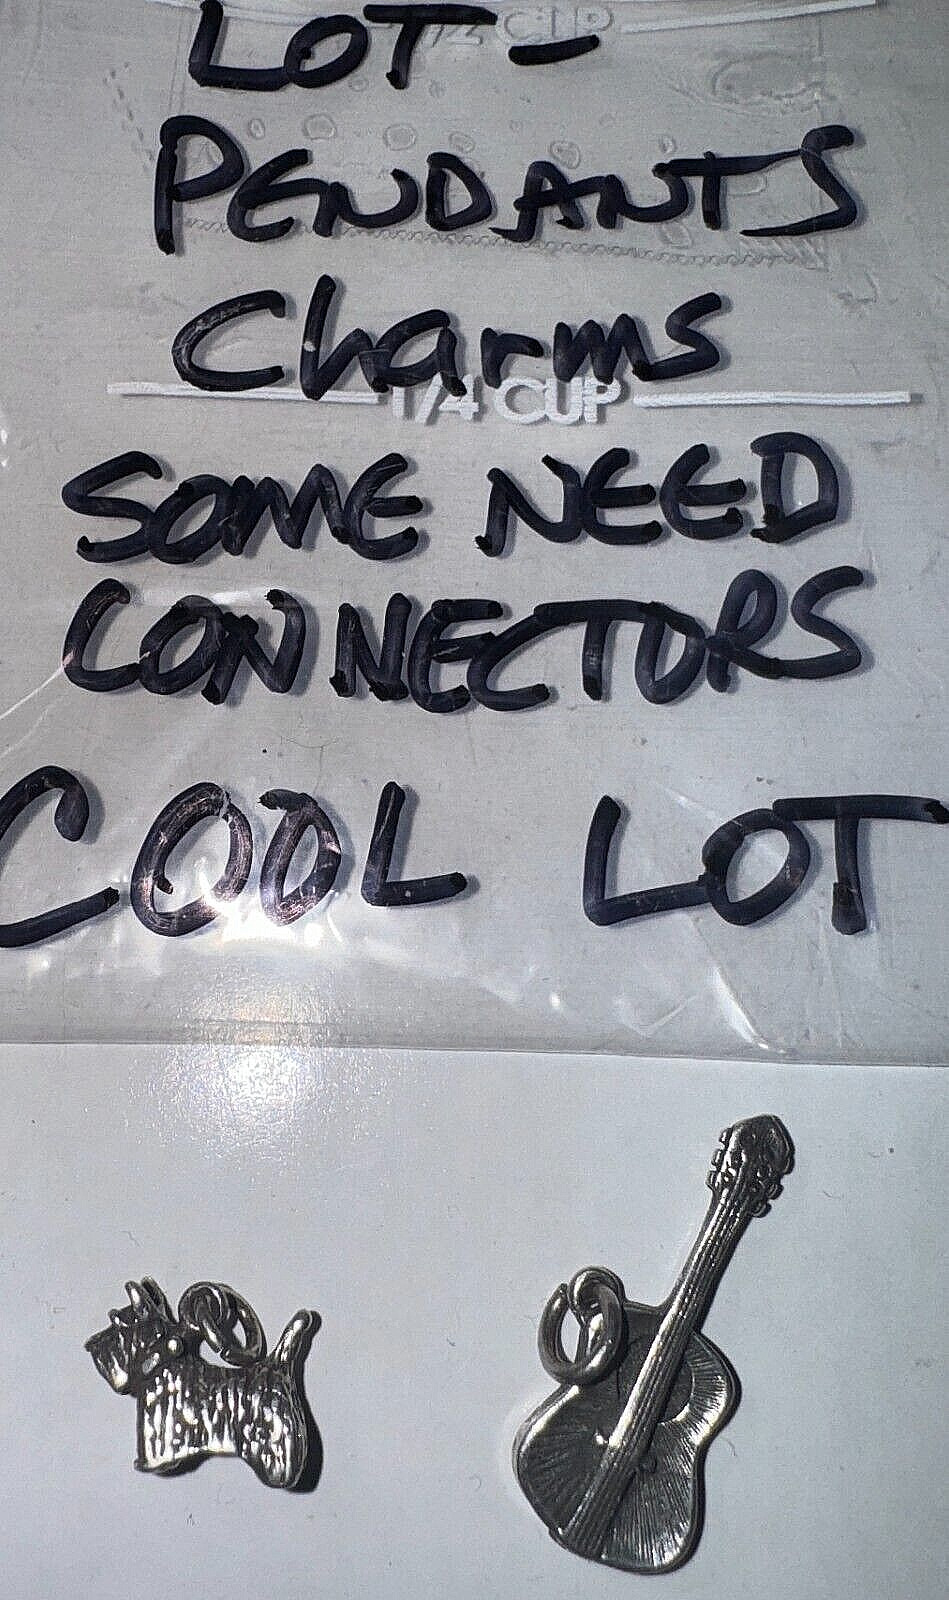 1/2 CUP
LOT -
PENDANTS
Charms
1/4 CUP
SOME NEED
CONNECTORS
COOL LOT